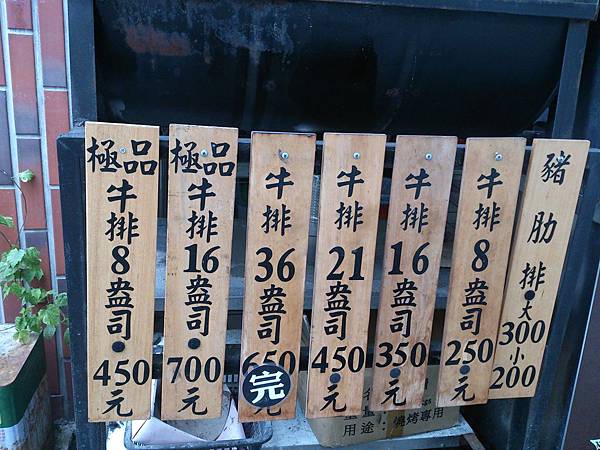 極品牛排8盎司•450元
極品牛排16盎司•700元
牛排36盎司650元
完
牛排21盎司450•元
牛排16盎司350•元
牛排8盎司250•元
豬肋排•大300小200
用途：燒烤專用